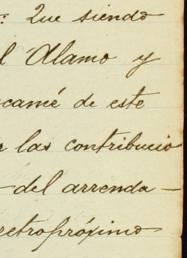 : Que siendo
l Alamo y
camé de este
r las contribucio
-del arrenda-
retropróximo